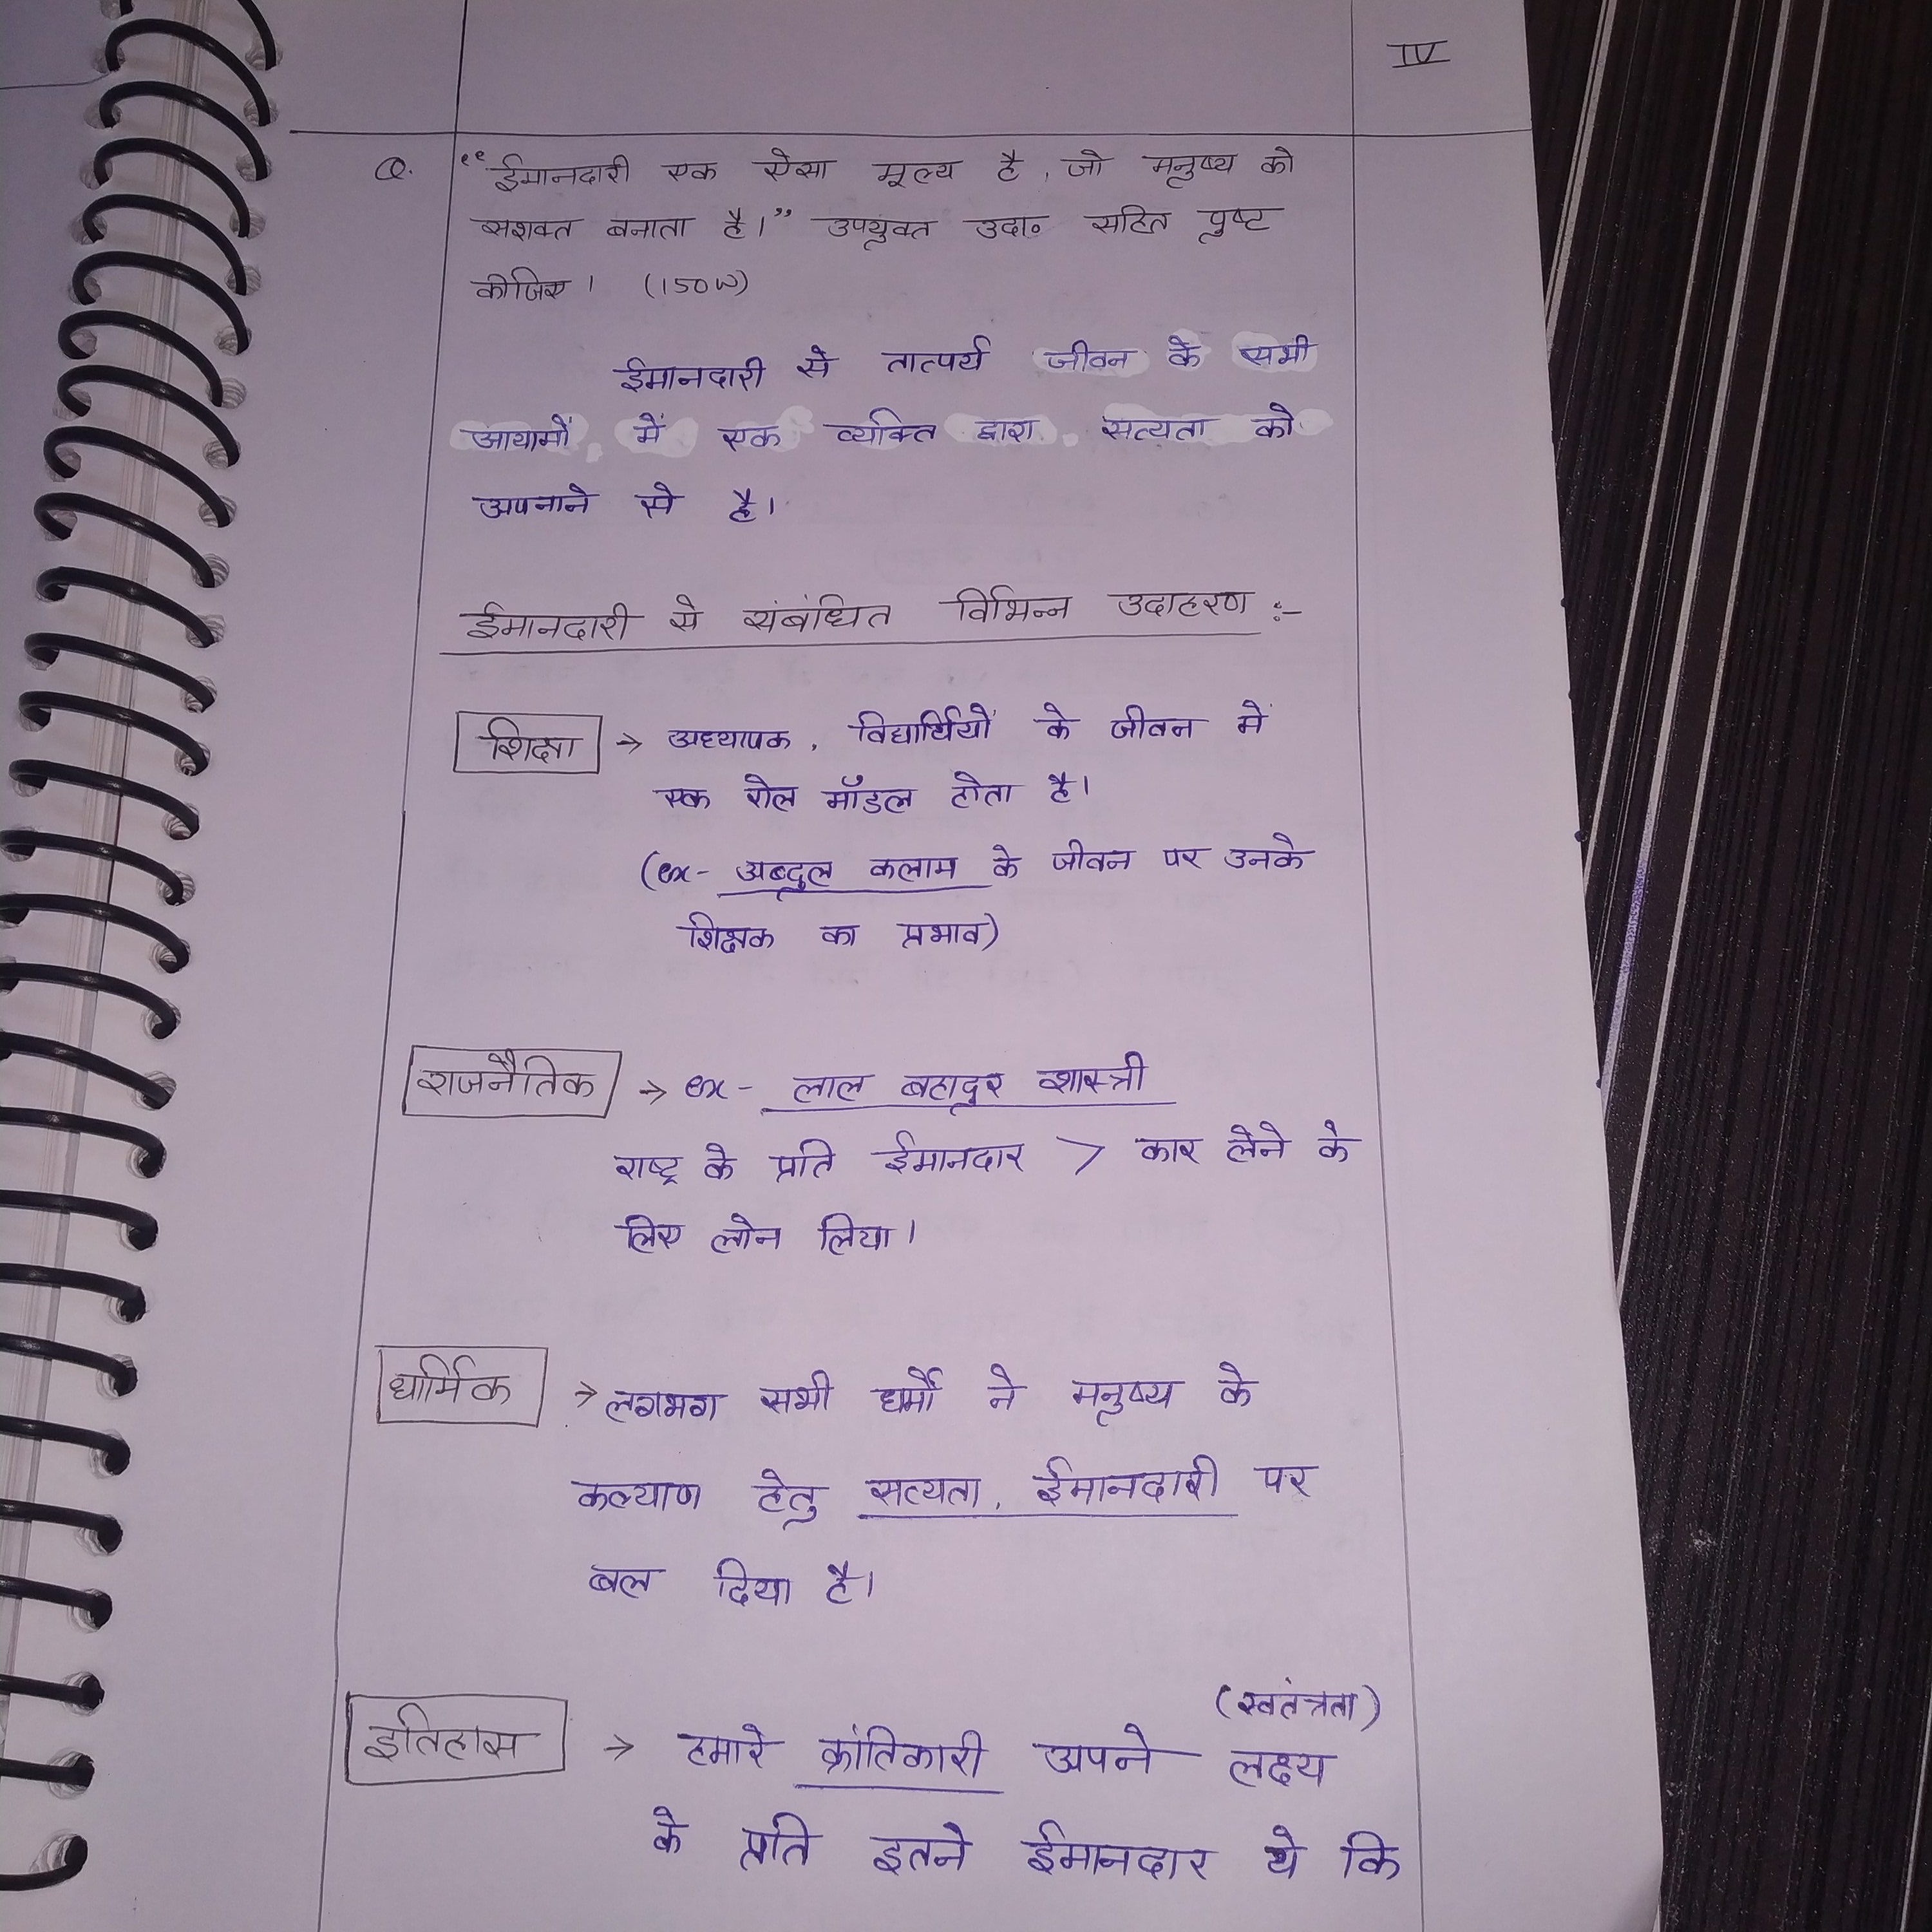 IV
Q. "ईमानदारी एक ऐसा मूल्य है, जो मनुष्य को
सशक्त बनाता है।" उपयुक्त उदा० सहित पुष्ट
कीजिए। (150W)
ईमानदारी से तात्पर्य जीवन के सभी
आयामों में एक व्यक्ति द्वारा सत्यता को
अपनाने से है।
ईमानदारी से संबंधित विभिन्न उदाहरण :-
शिक्षा → अध्यापक, विद्यार्थियों के जीवन में
एक रोल मॉडल होता है।
(ex- अब्दुल कलाम के जीवन पर उनके
शिक्षक का प्रभाव)
राजनैतिक → ex- लाल बहादुर शास्त्री
राष्ट्र के प्रति ईमानदार > कार लेने के
लिए लोन लिया।
धार्मिक → लगभग सभी धर्मों ने मनुष्य के
कल्याण हेतु सत्यता, ईमानदारी पर
बल दिया है।
(स्वतंत्रता)
इतिहास → हमारे क्रांतिकारी अपने लक्ष्य
के प्रति इतने ईमानदार थे कि